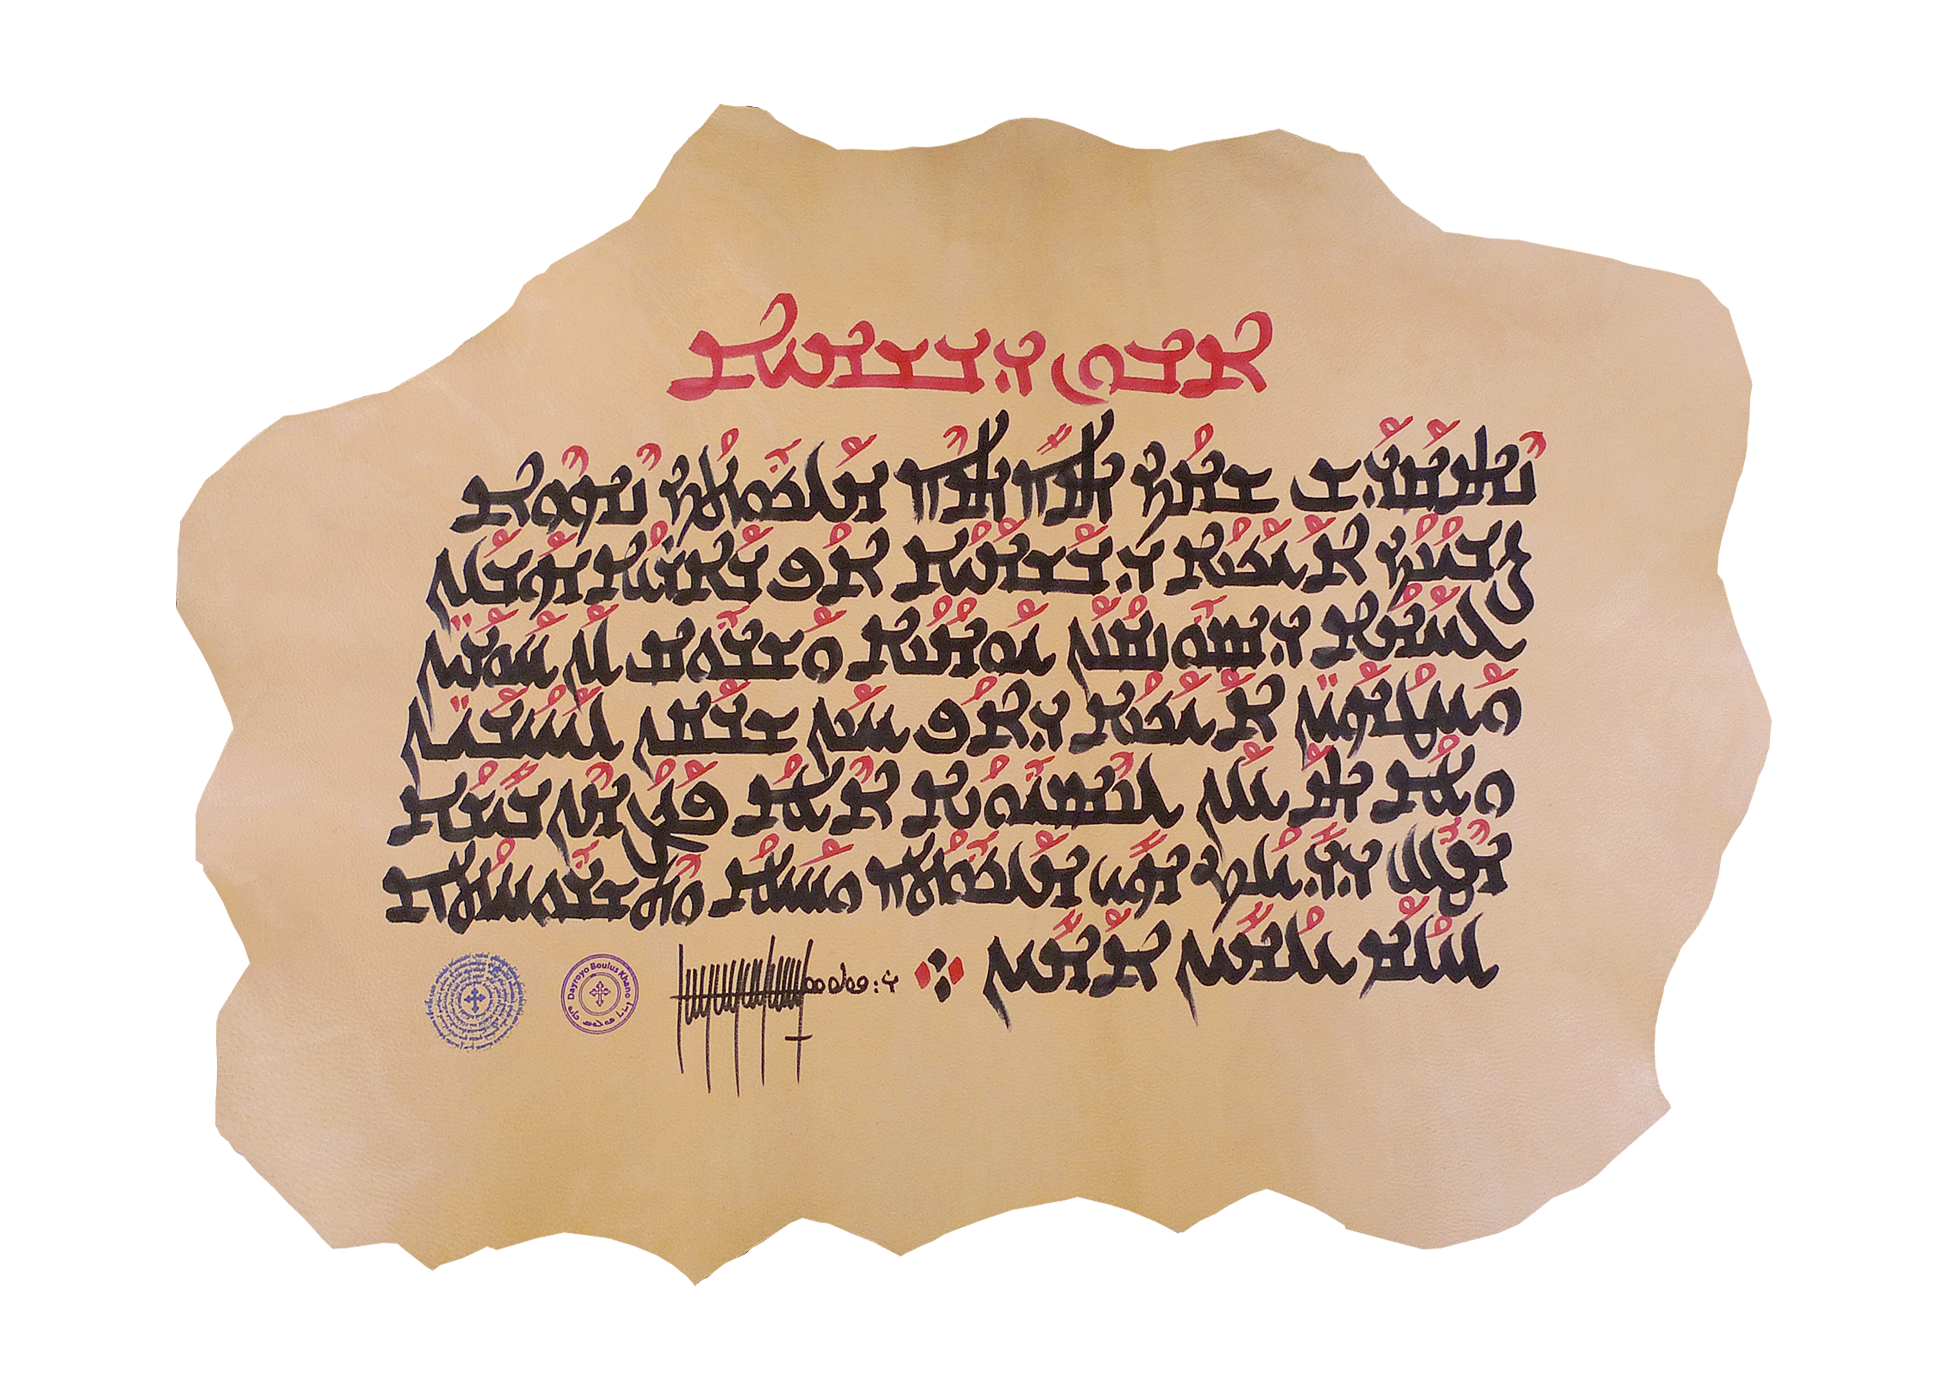 ܐܒܘܢ ܕܒܫܡܝܐ
ܢܶܬܩܰܕܰܫ ܫܡܳܟ ܬܺܐܬܶܐ ܡܰܠܟܽܘܬܳܟ ܢܶܗܘܶܐ
ܨܶܒܝܳܢܳܟ ܐܰܝܟܰܢܳܐ ܕܒܰܫܡܰܝܳܐ ܐܳܦ ܒܰܐܪܥܳܐ ܗܰܒ ܠܰܢ
ܠܰܚܡܳܐ ܕܣܽܘܢܩܳܢܰܢ ܝܰܘܡܳܢܳܐ ܘܰܫܒܽܘܩ ܠܰܢ ܚܰܘ̈ܒܰܝܢ
ܘܰܚܛܳܗܰܝ̈ܢ ܐܰܝܟܰܢܳܐ ܕܳܐܦ ܚܢܰܢ ܫܒܰܩܢ ܠܚܰܝܳܒܰܝ̈ܢ
ܘܠܳܐ ܬܰܥܠܰܢ ܠܢܶܣܝܽܘܢܳܐ ܐܶܠܳܐ ܦܰܨܳܐ ܠܰܢ ܡܶܢ ܒܺܝܫܳܐ
ܡܶܛܽܠ ܕܕܺܝܠܳܟ ܗܺܝ ܡܰܠܟܽܘܬܳܐ ܘܚܰܝܠܳܐ ܘܬܶܫܒܽܘܚܬܳܐ
ܠܥܳܠܰܡ ܥܳܠܡܺܝܢ ܐܰܡܺܝܢ
Dayroyo Boulus Khano